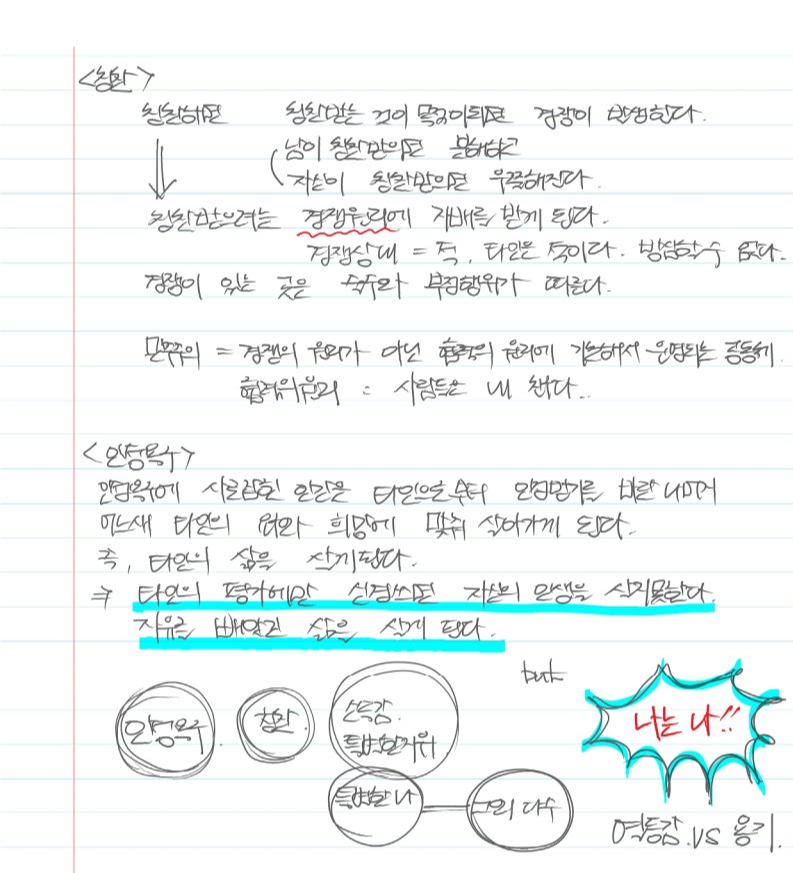 <칭찬>
칭찬하면 칭찬받는 것이 목적이되면 경쟁이 발생한다.
남이 칭찬받으면 분해하고
자신이 칭찬받으면 우쭐해진다.
칭찬받으려는 경쟁원리에 지배를 받게 된다.
경쟁상대 = 적, 타인은 적이다. 방심할수 없다.
경쟁이 있는 곳은 술수와 부정행위가 따른다.
민주주의 = 경쟁의 원리가 아닌 협력의 원리에 기초해서 운영되는 공동체.
협력의원리 : 사람들은 내 편다..
<인정욕구>
인정욕구에 사로잡힌 인간은 타인으로부터 인정받기를 바란 나머지
어느새 타인의 원와 희망에 맞춰 살아가게 된다.
즉, 타인의 삶을 살게된다.
⇒ 타인의 평가에만 신경쓰면 자신의 인생을 살지못한다.
자유를 빼앗긴 삶을 살게 된다.
but
인정욕구. 칭찬. 소속감.
특별한지위
나는 나!!
특별한 나 그외 다수
열등감.vs 용기.